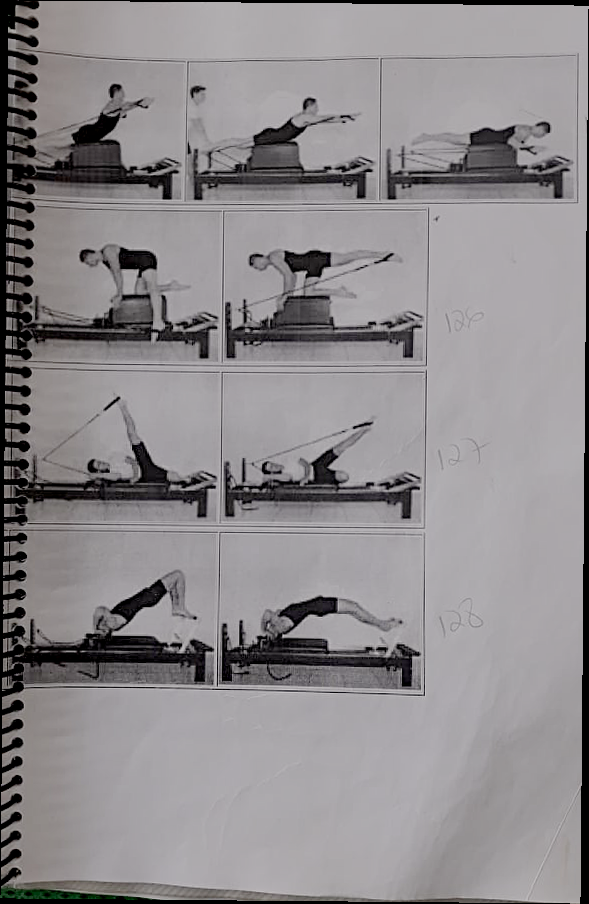 126
127
128